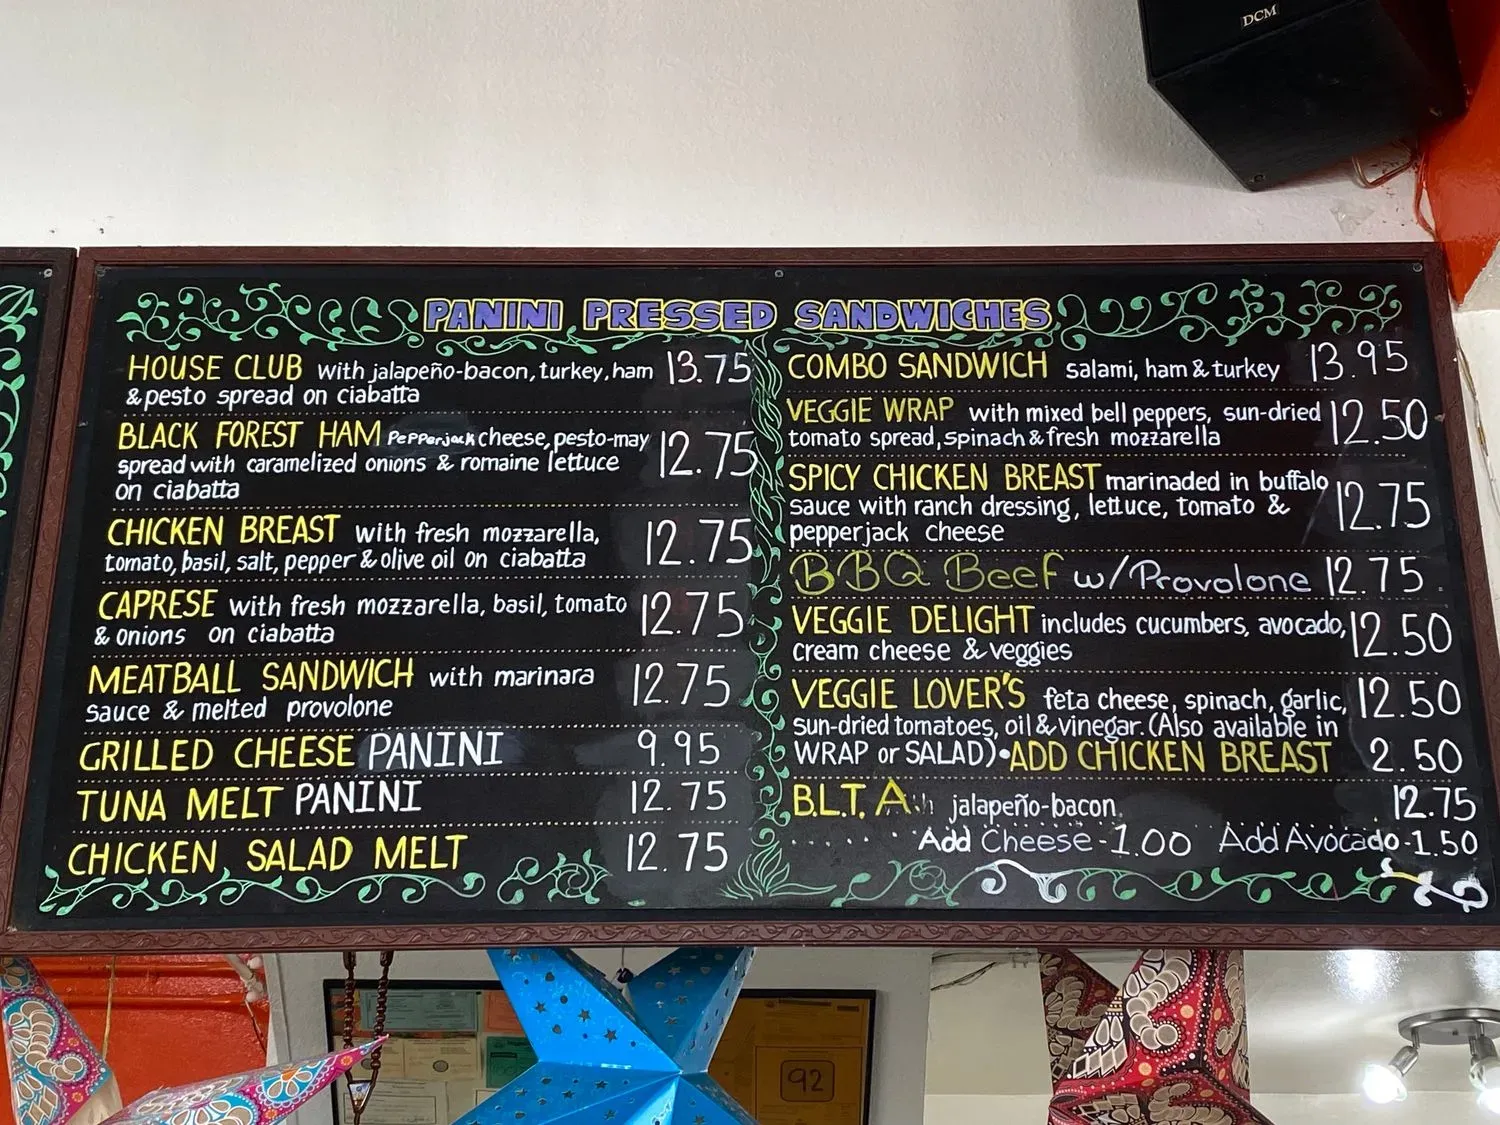 DCM
PANINI PRESSED SANDWICHES
HOUSE CLUB with jalapeño-bacon, turkey, ham 13.75
& pesto spread on ciabatta
BLACK FOREST HAM Pepperjack cheese, pesto-may 12.75
spread with caramelized onions & romaine lettuce
on ciabatta
CHICKEN BREAST with fresh mozzarella, 12.75
tomato, basil, salt, pepper & olive oil on ciabatta
CAPRESE with fresh mozzarella, basil, tomato 12.75
& onions on ciabatta
MEATBALL SANDWICH with marinara 12.75
sauce & melted provolone
GRILLED CHEESE PANINI 9.95
TUNA MELT PANINI 12.75
CHICKEN SALAD MELT 12.75
COMBO SANDWICH salami, ham & turkey 13.95
VEGGIE WRAP with mixed bell peppers, sun-dried 12.50
tomato spread, spinach & fresh mozzarella
SPICY CHICKEN BREAST marinaded in buffalo 12.75
sauce with ranch dressing, lettuce, tomato &
pepperjack cheese
BBQ Beef w/Provolone 12.75
VEGGIE DELIGHT includes cucumbers, avocado, 12.50
cream cheese & veggies
VEGGIE LOVER'S feta cheese, spinach, garlic, 12.50
sun-dried tomatoes, oil & vinegar. (Also available in
WRAP or SALAD) • ADD CHICKEN BREAST 2.50
B.L.T. A jalapeño-bacon 12.75
Add Cheese - 1.00 Add Avocado - 1.50
92